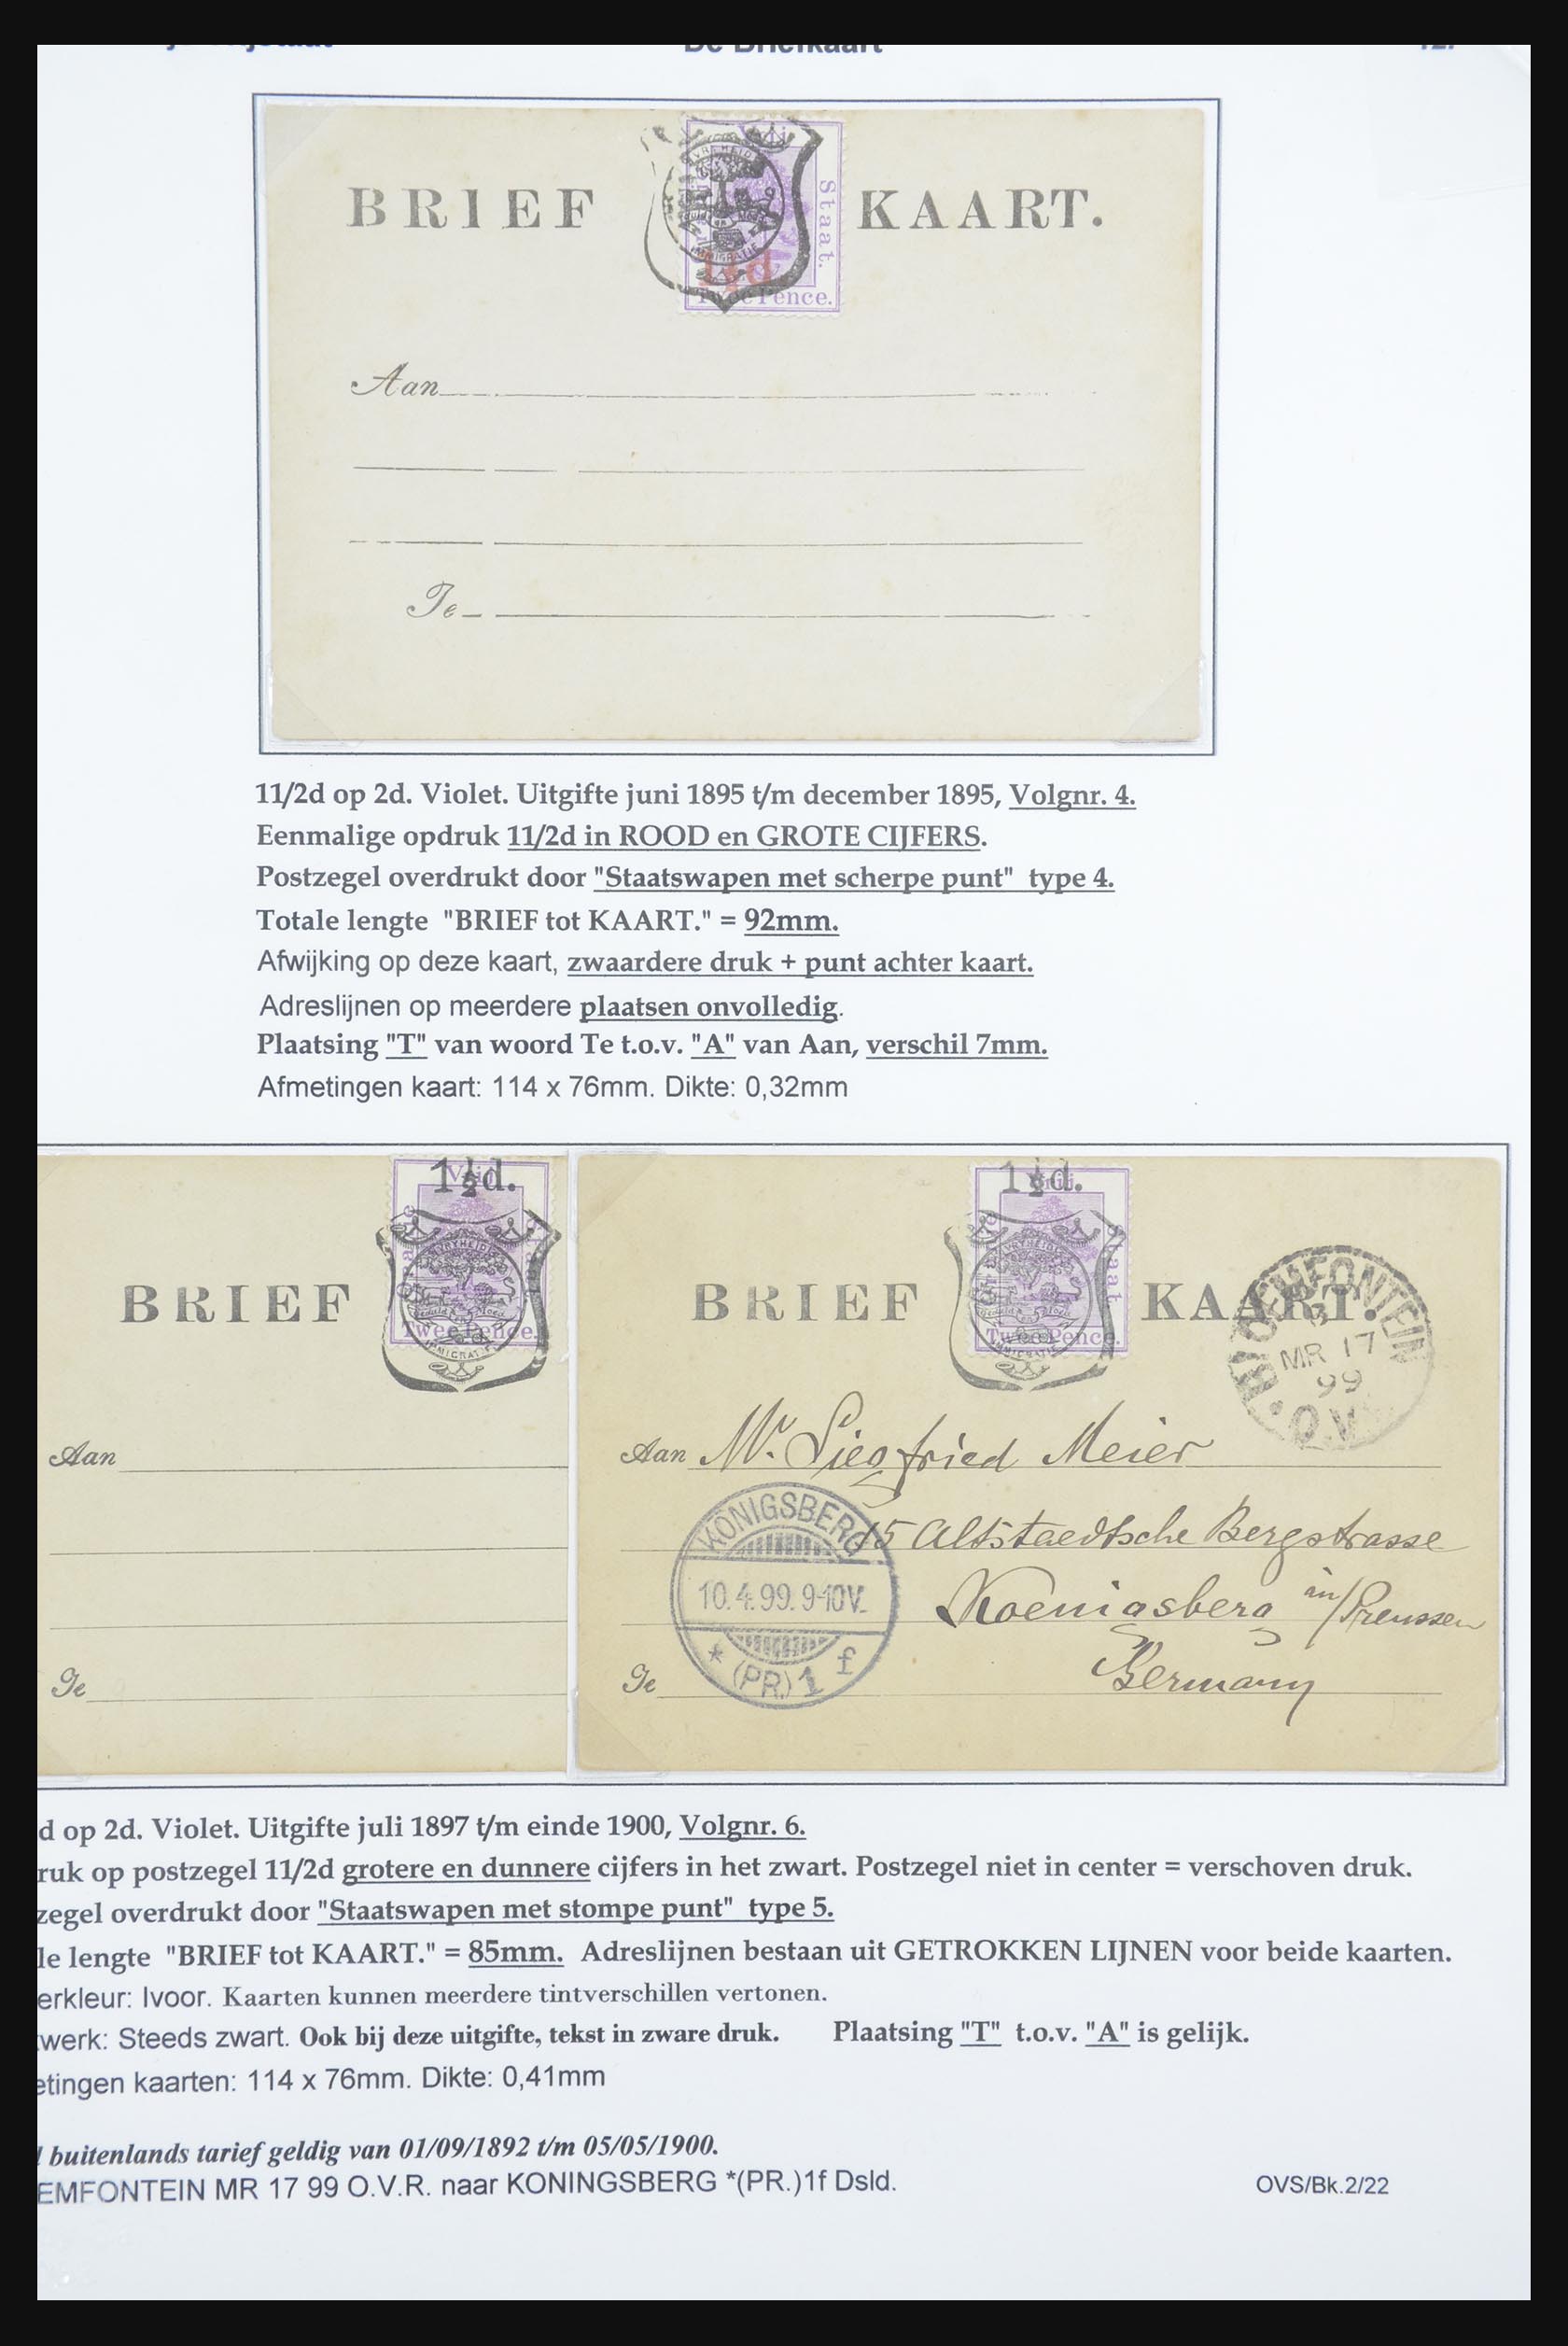 De Briefkaart
BRIEF KAART.
Staat.
IMMIGRATIE
Twee Pence.
Aan
Te
11/2d op 2d. Violet. Uitgifte juni 1895 t/m december 1895, Volgnr. 4.
Eenmalige opdruk 11/2d in ROOD en GROTE CIJFERS.
Postzegel overdrukt door "Staatswapen met scherpe punt" type 4.
Totale lengte "BRIEF tot KAART." = 92mm.
Afwijking op deze kaart, zwaardere druk + punt achter kaart.
Adreslijnen op meerdere plaatsen onvolledig.
Plaatsing "T" van woord Te t.o.v. "A" van Aan, verschil 7mm.
Afmetingen kaart: 114 x 76mm. Dikte: 0,32mm
1½d.
Vrij
VRYHEID
BRIEF
Twee Pence.
IMMIGRATIE
Aan
Te
1½d.
VRYHEID
BRIEF KAART.
Twee Pence.
IMMIGRATIE
BLOEMFONTEIN
MR 17
99
O.V.
Aan Mr. Siegfried Meier
15 Altstaedtsche Bergstrasse
Koenigsberg in/Preussen
Te Germany
KÖNIGSBERG
10.4.99.9-10V.
* (PR.) 1 f
d op 2d. Violet. Uitgifte juli 1897 t/m einde 1900, Volgnr. 6.
ruk op postzegel 11/2d grotere en dunnere cijfers in het zwart. Postzegel niet in center = verschoven druk.
zegel overdrukt door "Staatswapen met stompe punt" type 5.
le lengte "BRIEF tot KAART." = 85mm. Adreslijnen bestaan uit GETROKKEN LIJNEN voor beide kaarten.
erkleur: Ivoor. Kaarten kunnen meerdere tintverschillen vertonen.
werk: Steeds zwart. Ook bij deze uitgifte, tekst in zware druk. Plaatsing "T" t.o.v. "A" is gelijk.
etingen kaarten: 114 x 76mm. Dikte: 0,41mm
buitenlands tarief geldig van 01/09/1892 t/m 05/05/1900.
EMFONTEIN MR 17 99 O.V.R. naar KONINGSBERG *(PR.)1f Dsld.
OVS/Bk.2/22